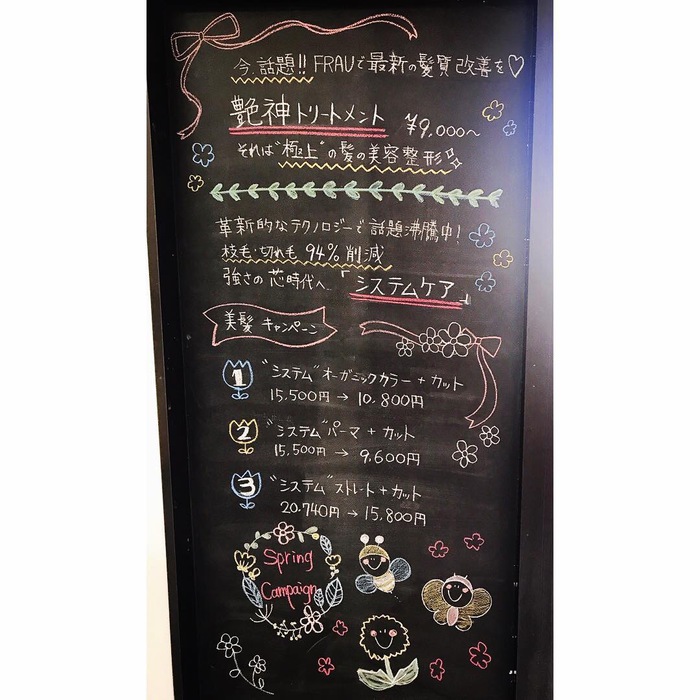 今、話題!! FRAUで最新の髪質改善を♡
艶神トリートメント ¥9,000〜
それは"極上"の髪の美容整形
革新的なテクノロジーで話題沸騰中!
枝毛・切れ毛 94%削減
強さの芯時代へ 「システムケア」
美髪キャンペーン
1 "システム"オーガニックカラー + カット
15,500円 → 10,800円
2 "システム"パーマ + カット
15,500円 → 9,600円
3 "システム"ストレート + カット
20,740円 → 15,800円
Spring
Campaign